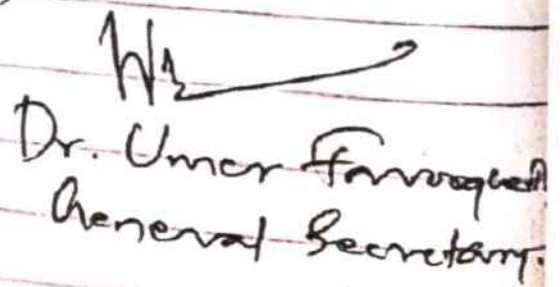 Dr. Umer Farooquei
General Secretary.